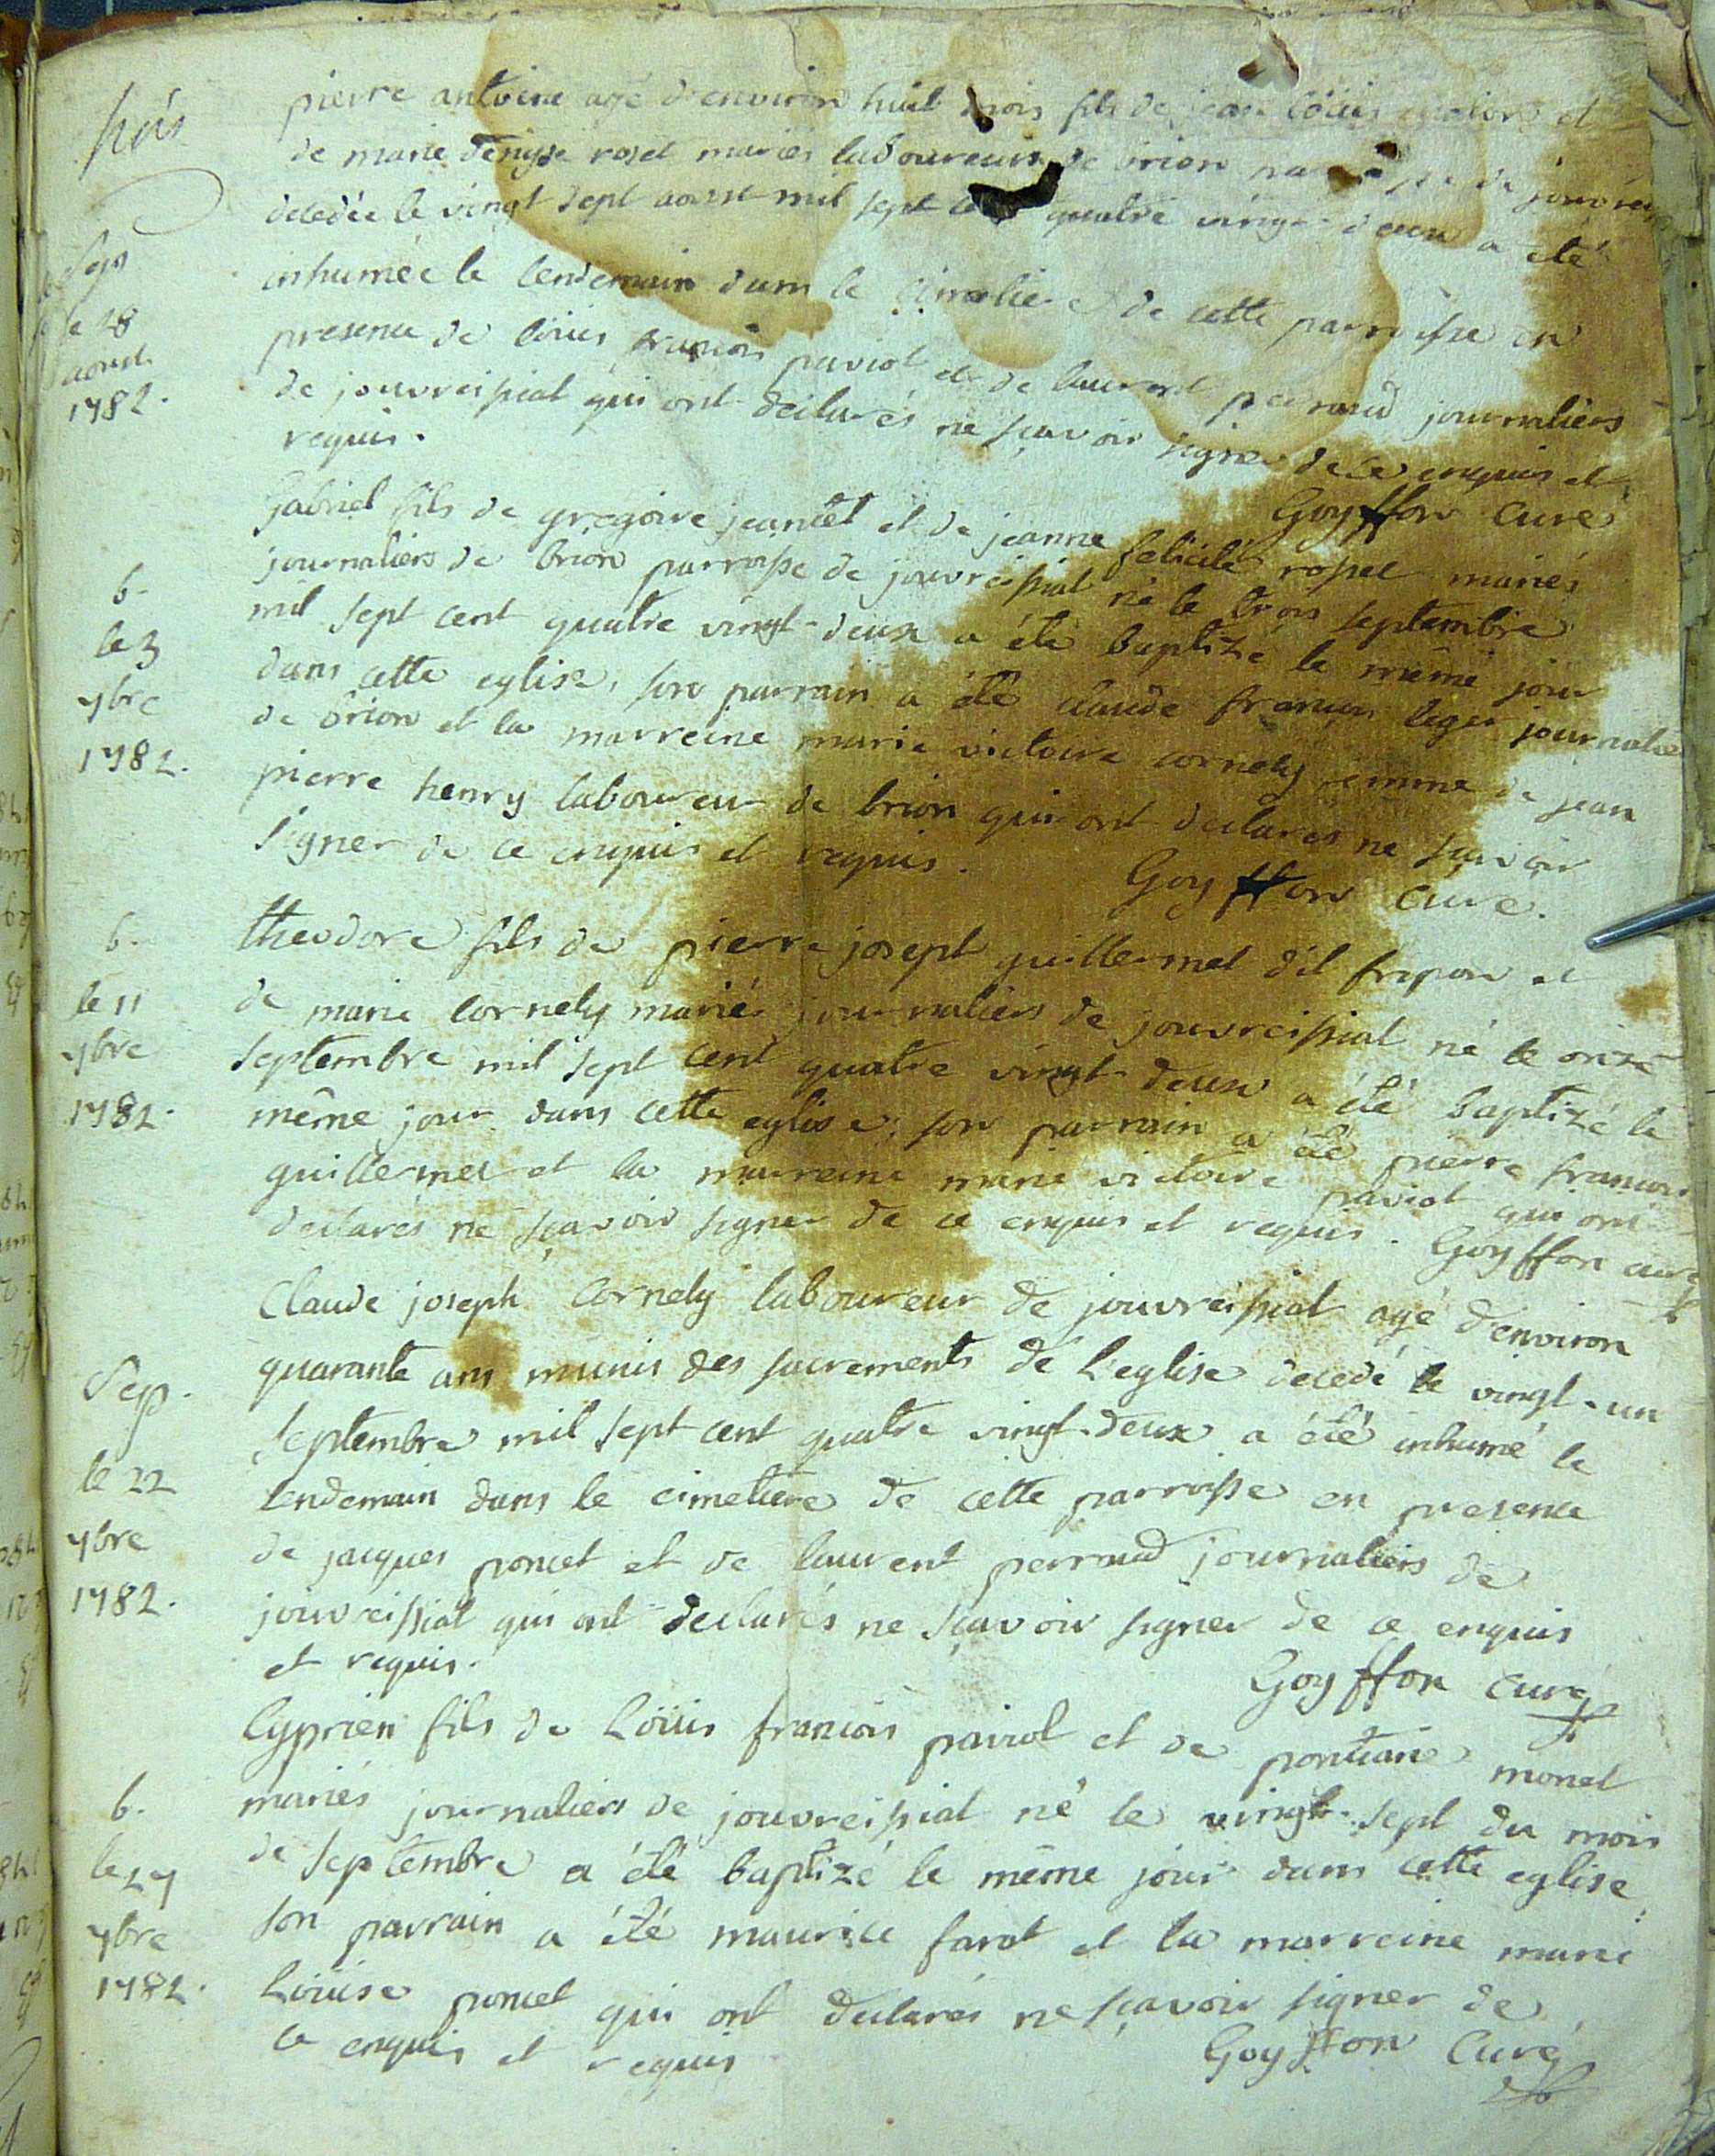 pierre antoine agé d'environ huit mois fils de jean Loüis et
de marie denyse roset mariés laboureurs de brion de
decedée le vingt sept aoust mil sept cent quatre vingt deux a été
inhumée le lendemain dans le cimetiere de cette parroisse en
presence de loüis francois paviot et de laurent perraud journaliers
de jouvreissiat qui ont declarés ne sçavoir signer de ce enquis et
requis.
Goyffon Curé
Sep
le 28
aoust
1782.
Gabriel fils de gregoire jeantet et de jeanne felicité rosset mariés
journaliers de brion parroisse de jouvreissiat né le trois septembre
mil sept cent quatre vingt-deux a été baptizé le même jour
dans cette eglise, son parrain a été claude francois leger journalier
de brion et la marreine marie victoire cornely femme de jean
pierre henry laboureur de brion qui ont declarés ne sçavoir
signer de ce enquis et requis.
Goyffon Curé.
b.
le 3
7bre
1782.
theodore fils de pierre josept guillermet dit frapon et
de marie Cornely mariés journaliers de jouvreissiat né le onze
septembre mil sept cent quatre vingt-deux a été baptizé le
même jour dans cette eglise; son parrain a été pierre francois
guillermet et la marreine marie victoire paviot qui ont
declarés ne sçavoir signer de ce enquis et requis. Goyffon curé
b.
le 11
7bre
1782.
Claude joseph Cornely laboureur de jouvreissiat agé d'environ
quarante ans munis des sacrements de L'eglise decedé le vingt-un
septembre mil sept cent quatre vingt-deux a été inhumé le
lendemain dans le cimetiere de cette parroisse en presence
de jacques poncet et de laurent perraud journaliers de
jouvreissiat qui ont declarés ne sçavoir signer de ce enquis
et requis.
Goyffon Curé
Sep.
le 22
7bre
1782.
Cyprien fils de Loüis francois paviot et de pontiane monet
mariés journaliers de jouvreissiat né le vingt-sept du mois
de septembre a été baptizé le même jour dans cette eglise;
son parrain a été maurice farot et la marreine marie
Loüise poncet qui ont declarés ne sçavoir signer de
ce enquis et requis
Goyffon Curé
b.
le 27
7bre
1782.